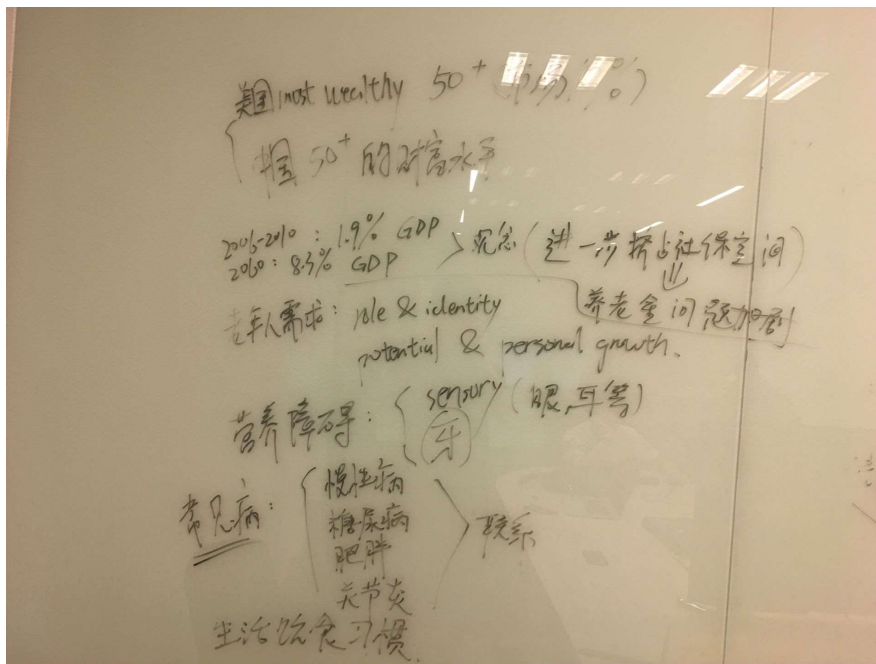 美国 most wealthy 50+
中国 50+ 的财富水平
2006-2010 : 1.9% GDP
2060 : 8.3% GDP
(进一步挤占社保空间)
养老金问题加剧
老年人需求: role & identity
potential & personal growth.
营养障碍: sensory (眼,耳等)
牙
常见病: 慢性病
糖尿病
肥胖
关节炎
联系
生活饮食习惯.